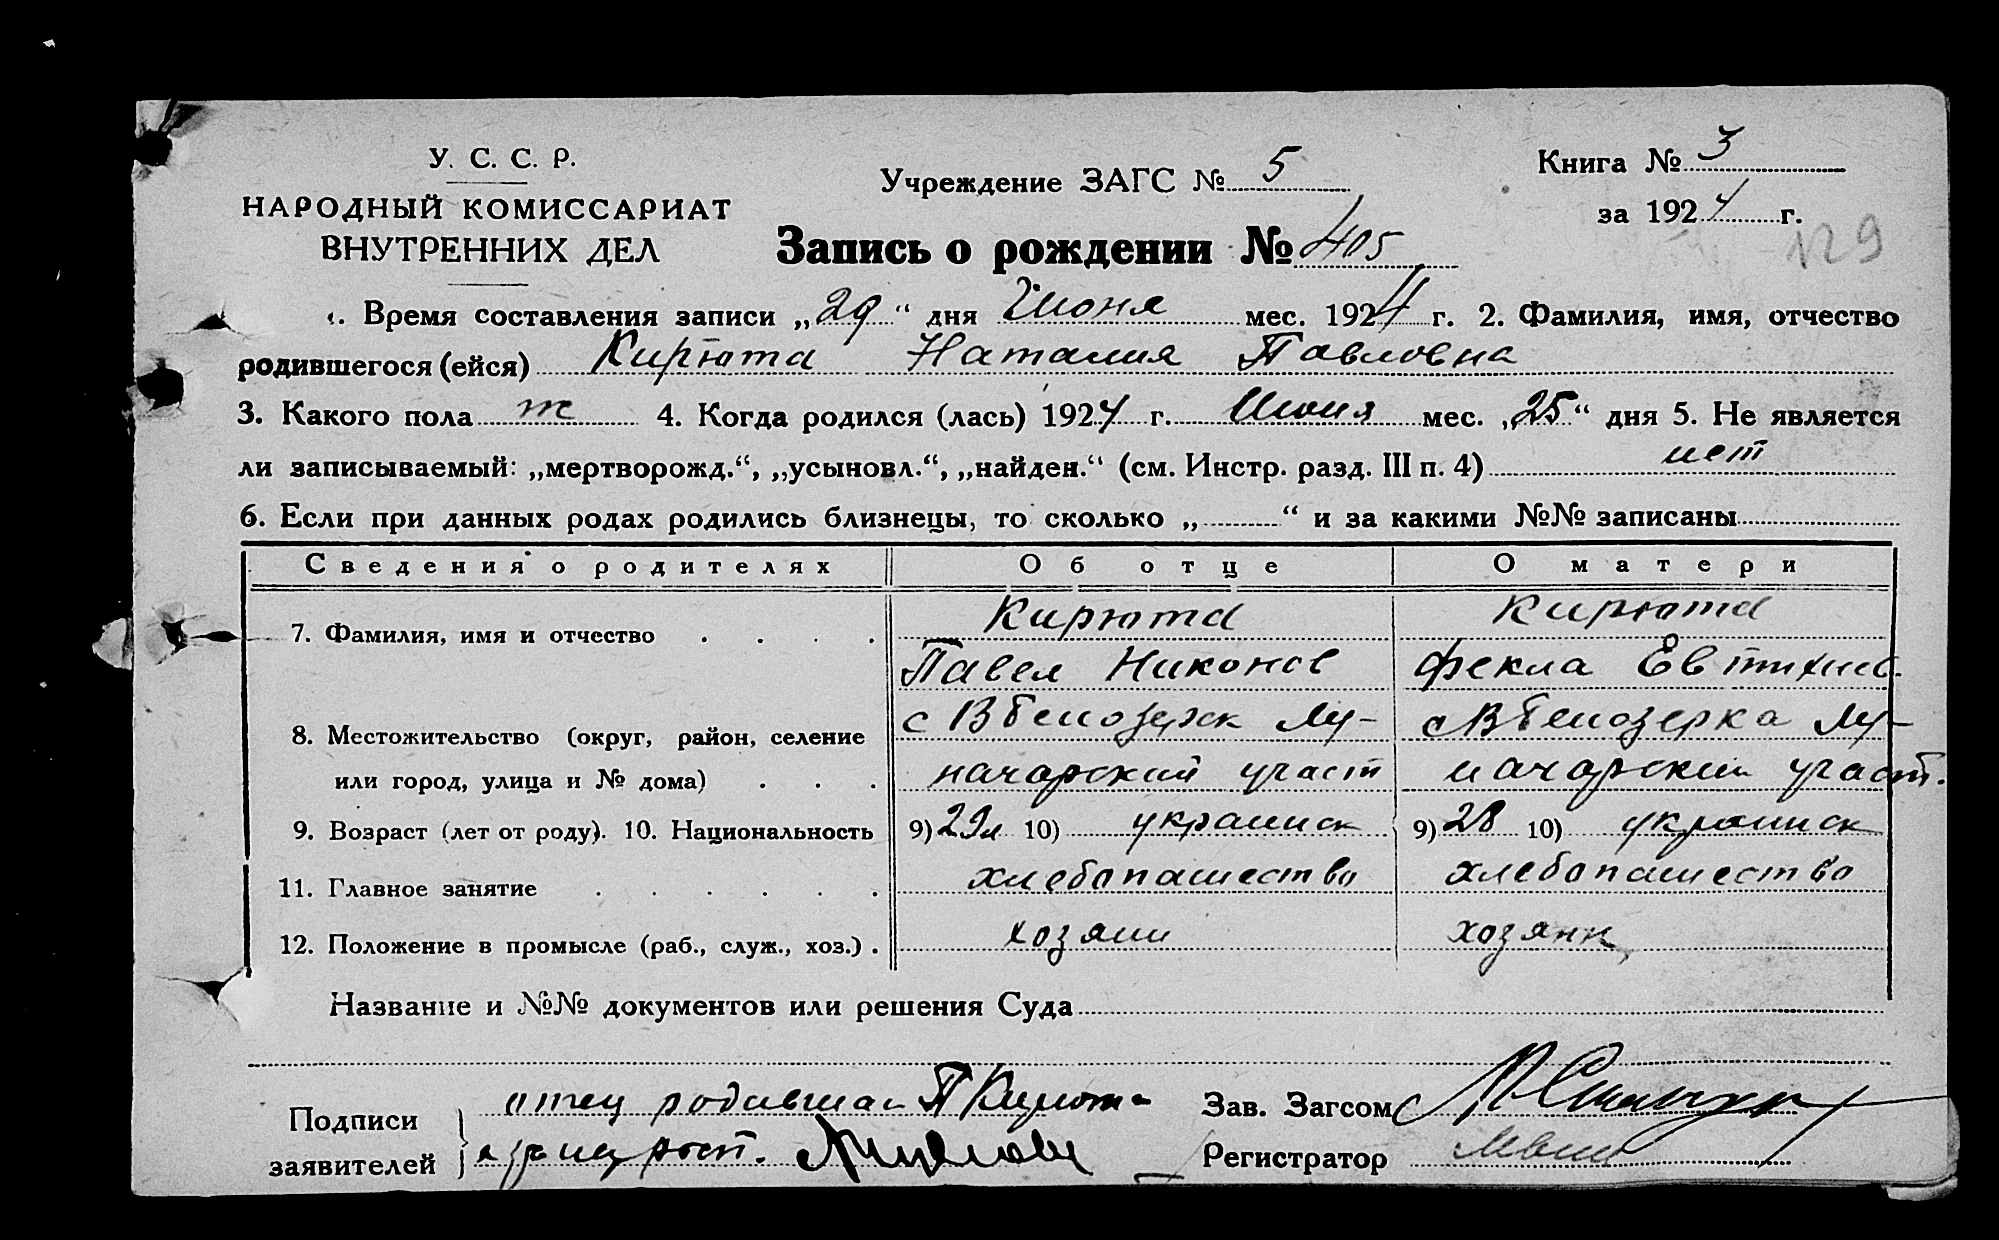 У. С. С. Р.
НАРОДНЫЙ КОМИССАРИАТ
ВНУТРЕННИХ ДЕЛ
Учреждение ЗАГС № 5
Книга № 3
за 1924 г.
129
Запись о рождении № 405
1. Время составления записи „29“ дня Июня мес. 1924 г. 2. Фамилия, имя, отчество
родившегося (ейся) Кирюта Наталия Павловна
3. Какого пола ж 4. Когда родился (лась) 1924 г. Июня мес. „25“ дня 5. Не является
ли записываемый: „мертворожд.“, „усыновл.“, „найден.“ (см. Инстр. разд. III п. 4) нет
6. Если при данных родах родились близнецы, то сколько „ “ и за какими №№ записаны
Сведения о родителях Об отце О матери
7. Фамилия, имя и отчество Кирюта Кирюта
Павел Никонов Фекла Евтихиев.
8. Местожительство (округ, район, селение с В белозерк Лу- с В белозерка Лу-
или город, улица и № дома) начарский участ начарский участ.
9. Возраст (лет от роду). 10. Национальность 9) 29л 10) украинск 9) 28 10) украинск
11. Главное занятие хлебопашество хлебопашество
12. Положение в промысле (раб., служ., хоз.) хозяин хозяин
Название и №№ документов или решения Суда
Подписи заявителей
отец родившейся П Кирюта
Зав. Загсом
Регистратор